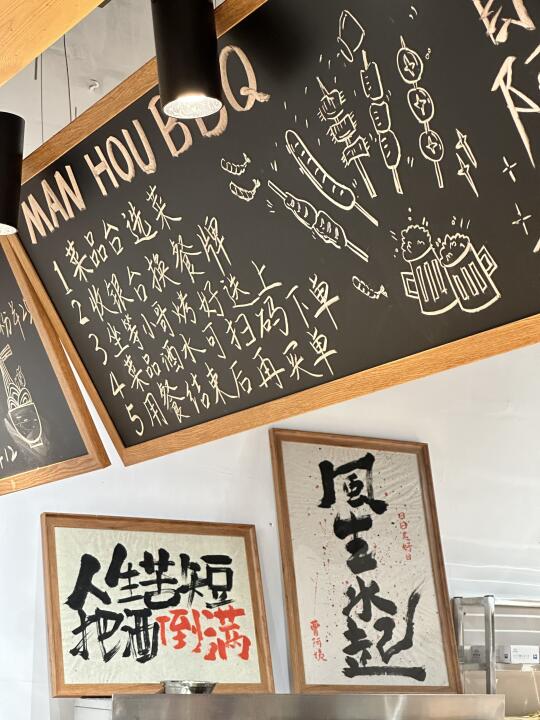 MAN HOU BBQ
1 菜品台选菜
2 收银台换餐牌
3 坐等小哥烤好送上
4 菜品酒水可扫码下单
5 用餐结束后再买单
12
人生苦短
把酒倒满
風生水起
日日是好日